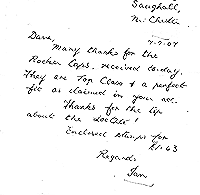 Saughall,
Nr. Chester
7-7-07
Dave,
Many thanks for the
Rocker Caps, received today.
They are Top Class & a perfect
fit as claimed in your ad.
Thanks for the tip
about the Loctite!
Enclosed stamps for
£1.63
Regards
Ian